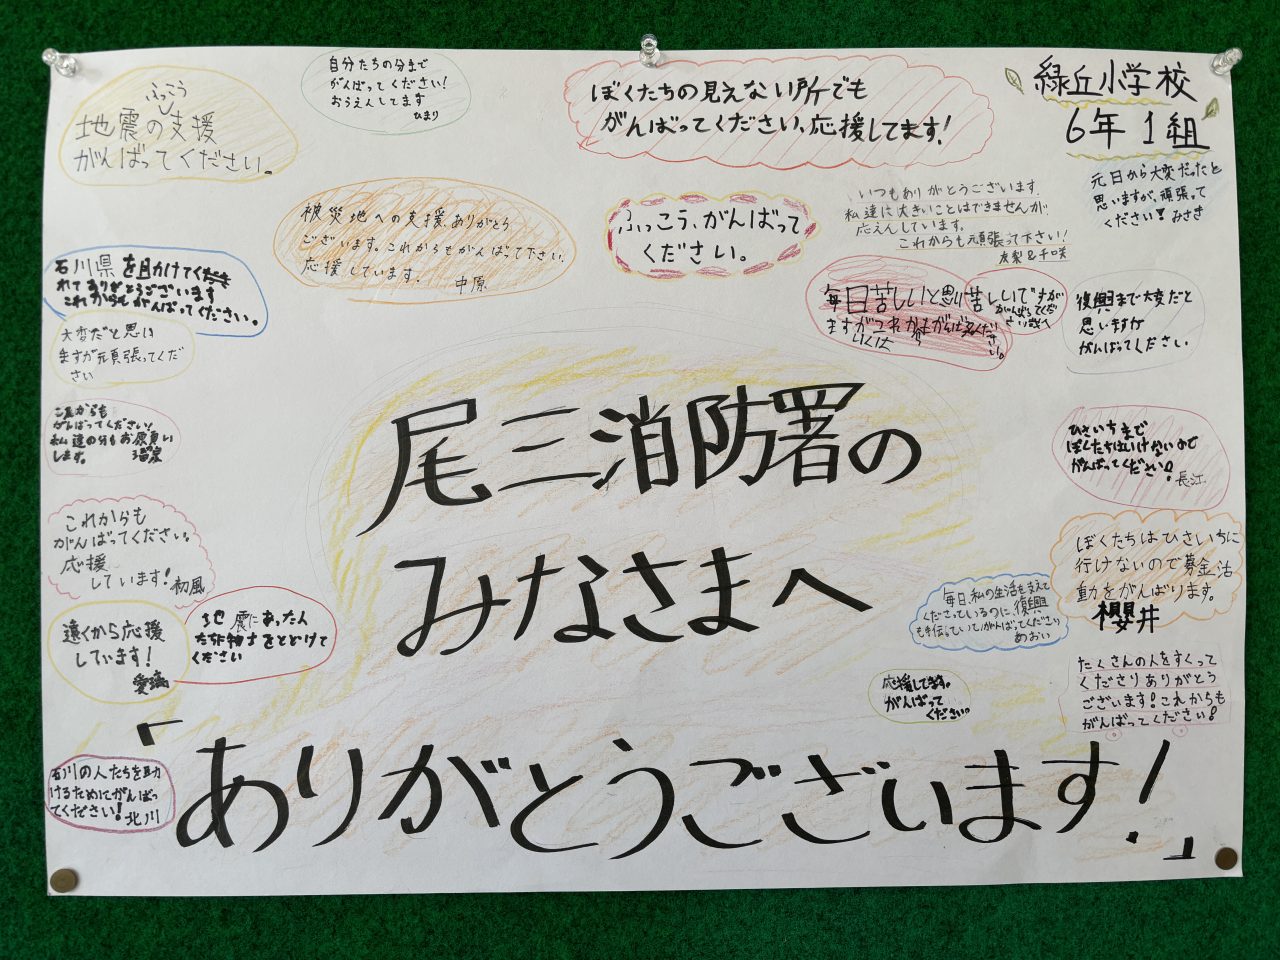 緑丘小学校
6年1組
尾三消防署の
みなさまへ
「ありがとうございます!」
ふっこう
地震の支援
がんばってください。
自分たちの分まで
がんばってください!
おうえんしてます
ひまり
ぼくたちの見えない所でも
がんばってください、応援してます!
被災地への支援ありがとう
ございます。これからもがんばって下さい。
応援しています。 中原
ふっこう、がんばって
ください。
いつもありがとうございます。
私達は大きいことはできませんが
応えんしています。
これからも頑張って下さい!
友梨&千咲
元日から大変だったと
思いますが、頑張って
ください! みさき
石川県を
これからもがんばってください。
大変だと思い
ますが頑張ってくだ
さい
毎日苦しいと思い
ますが
苦しいですが
復興まで大変だと
思いますが
がんばってください。
これからも
がんばってください!
私達の分もお願い
します。
ひさいちまで
ぼくたちはいけないので
がんばってください!
長江
これからも
がんばってください。
応援
しています! 初風
ぼくたちはひさいちに
行けないので募金活
動をがんばります。
櫻井
遠くから応援
しています!
愛璃
地震にあった人
をとどけて
ください
毎日、私の生活を支えて
くださっているのに、復興
も手伝っていてがんばってください
あおい
応援してます。
がんばって
ください。
たくさんの人をすくって
くださりありがとう
ございます!これからも
がんばってください!
石川の人たちを助
けるためにがんばっ
てください! 北川